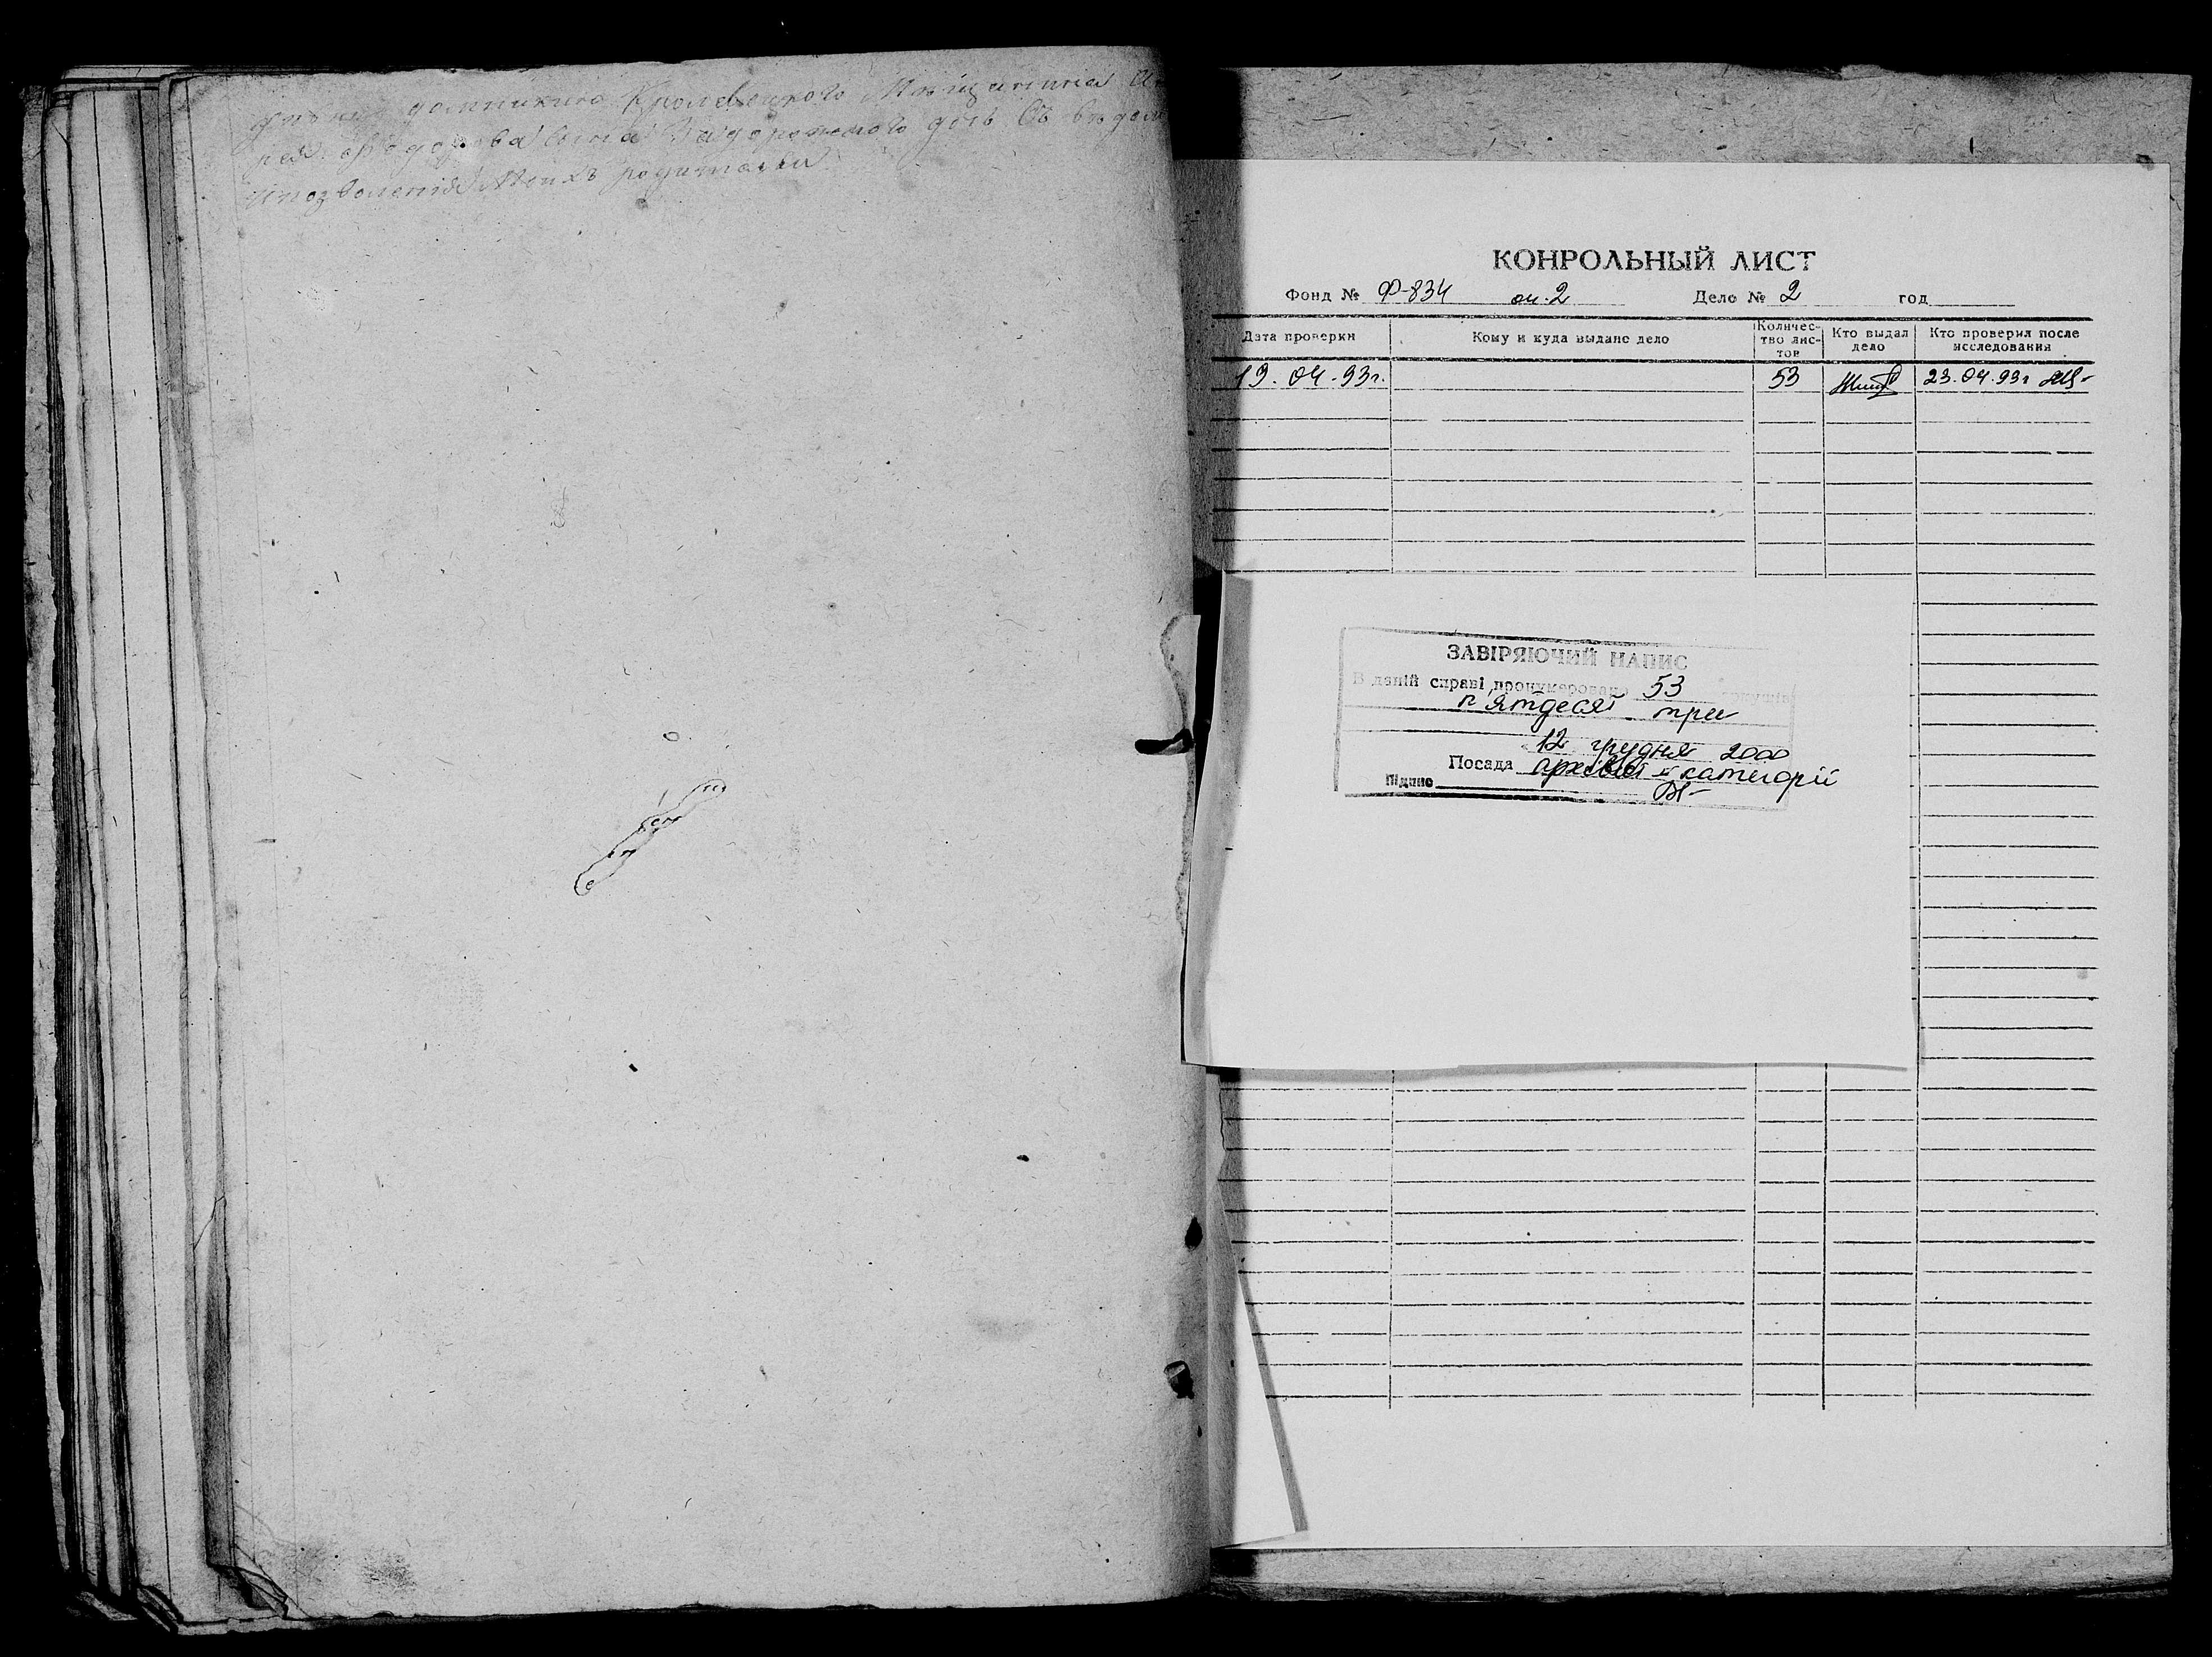 Кролевецкого Мещанина
Федорова сына Задорожного
позволения родители
КОНРОЛЬНЫЙ ЛИСТ
Фонд № Ф-834 оп. 2 Дело № 2 год
Дата проверки Кому и куда выдано дело Количес-тво лис-тов Кто выдал дело Кто проверил после исследования
19.04.93г. 53 23.04.93г
ЗАВІРЯЮЧИЙ НАПИС
В даній справі пронумеровано 53 аркушів
п'ятдесят три
12 грудня 2000
Посада архівіст II категорії
Підпис